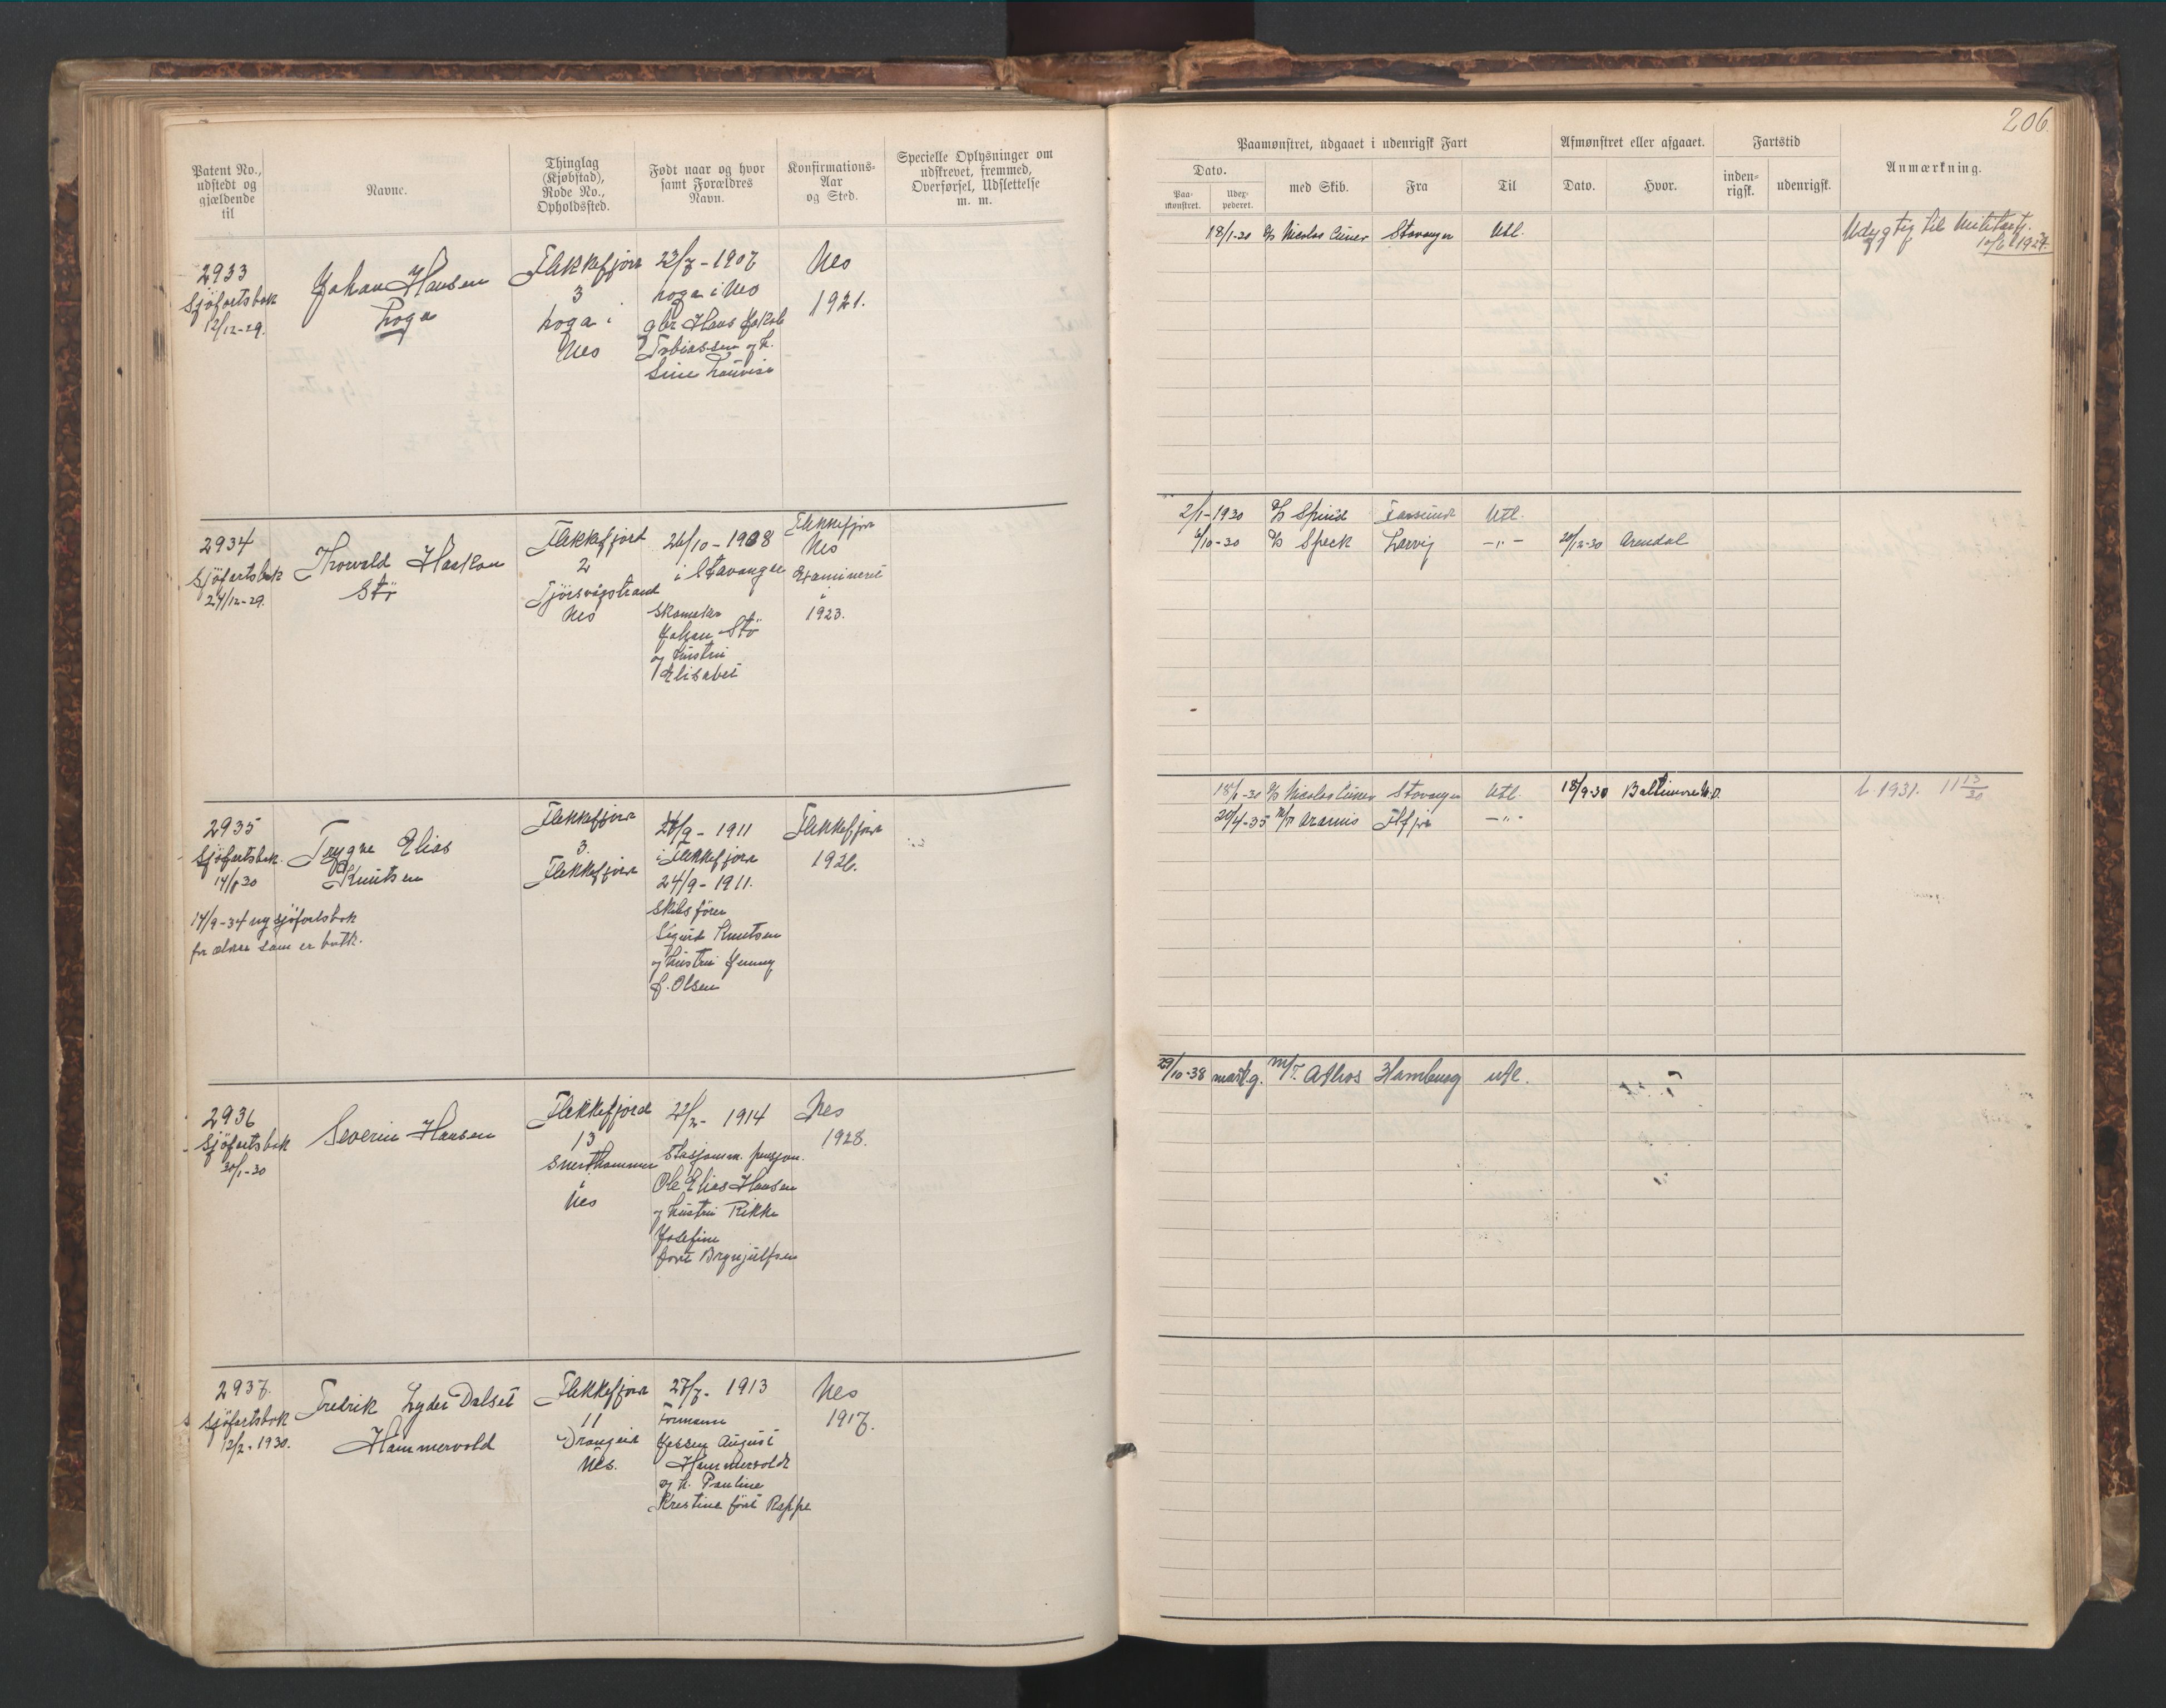 206.
Patent No., udstedt og gjældende til
Navne.
Thinglag (Kjøbstad), Rode No., Opholdssted.
Født naar og hvor samt Forældres Navn.
Konfirmations-Aar og Sted.
Specielle Oplysninger om udskrevet, fremmed, Overførsel, Udslettelse m. m.
Paamønstret, udgaaet i udenrigsk Fart
Dato.
Paa-mønstret.
Udex-pederet.
med Skib.
Fra
Til
Afmønstret eller afgaaet.
Dato.
Hvor.
Fartstid
inden-rigsk.
udenrigsk.
Anmærkning.
2933
Sjöfartsbok
12/12-29.
Johan Hansen
Loga
Flekkefjord
3
Loga i
Nes
22/7-1907
Loga i Nes
gbr Hans Jakob
Tobiassen og h.
Sine Lovise
Nes
1921.
18/1-30 Nicolas Cuneo Stavanger Utl.
Udygtig til Militærtj.
2934
Sjöfartsbok
27/12-29.
Thorvald Haakon
Stö
Flekkefjord
2
Tjörsvågstrand
Nes
26/10-1908
i Stavanger
Skomaker
Johan Stö
og hustru
Elisabet
Flekkefjord
Nes
Examineret
1923.
2/1-1930 D/S Spind Farsund Utl.
1/10-30 D/S Speck Larvig -"- 20/12-30 Arendal
2935
Sjöfartsbok
14/1 30
Trygve Elias
Knutsen
14/9-34 ny sjöfartsbok
for ældre som er bortk.
Flekkefjord
3.
Flekkefjord
24/9-1911
i Flekkefjord
24/9-1911.
Skibsförer
Sigurd Knutsen
og hustru Jenny
f. Olsen
Flekkefjord
1926.
18/1-30 D/S Nicolas Cuneo Stavanger Utl. 18/9-30 Baltimore M.D.
L. 1931. 11 13/30
20/4-35 M/T Aramis -"-
2936
Sjöfartsbok
30/1-30
Severin Hansen
Flekkefjord
13
Nes
22/2-1914
Stasjonsm. pensjon.
Ole Elias Hansen
og hustru Rikke
Josefine
født Brynjulfsen
Nes
1928.
29/10-38 M/T. Athos Hamburg utl.
2937.
Sjöfartsbok
12/2-1930.
Fredrik Lyder Dalset
Hammervold
Flekkefjord
11
Drangeid
Nes.
27/7-1913
Formann
Jessen August
Hammervold
og h. Pauline
Kristine född Reppe
Nes
1917.